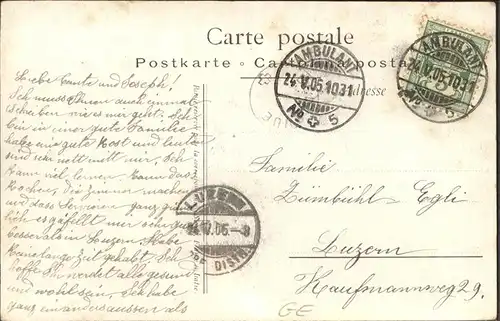 Carte postale
Postkarte · Cartolina postale
Adresse
AMBULANT
24.V.05.1031
No 5
AMBULANT
24.V.05.1031
No 5
LUZERN
24.V.05-8
BRF. DISTR.
Liebe Tante und Joseph!
Ich muss Ihnen auch einmal
schreiben wie es mir geht. Ich
bin in einer gute Familie
habe eine gute Kost und Leute
sind sehr nett mitt mir. Ich
kann viel lernen kann das
Kochen, die Zimmer machen
und dass Servieren ganz
es gefällt mir sehr gut
besser als in Luzern. Habe
Keine lange Zeit gehabt. Ich
hoffe Ihr werdet alle gesund
und wohl sein, Ich habe
ganz ein anders aussen als
Familie
Zümbühl-Egli
Luzern
Kaufmannweg 29.
GE